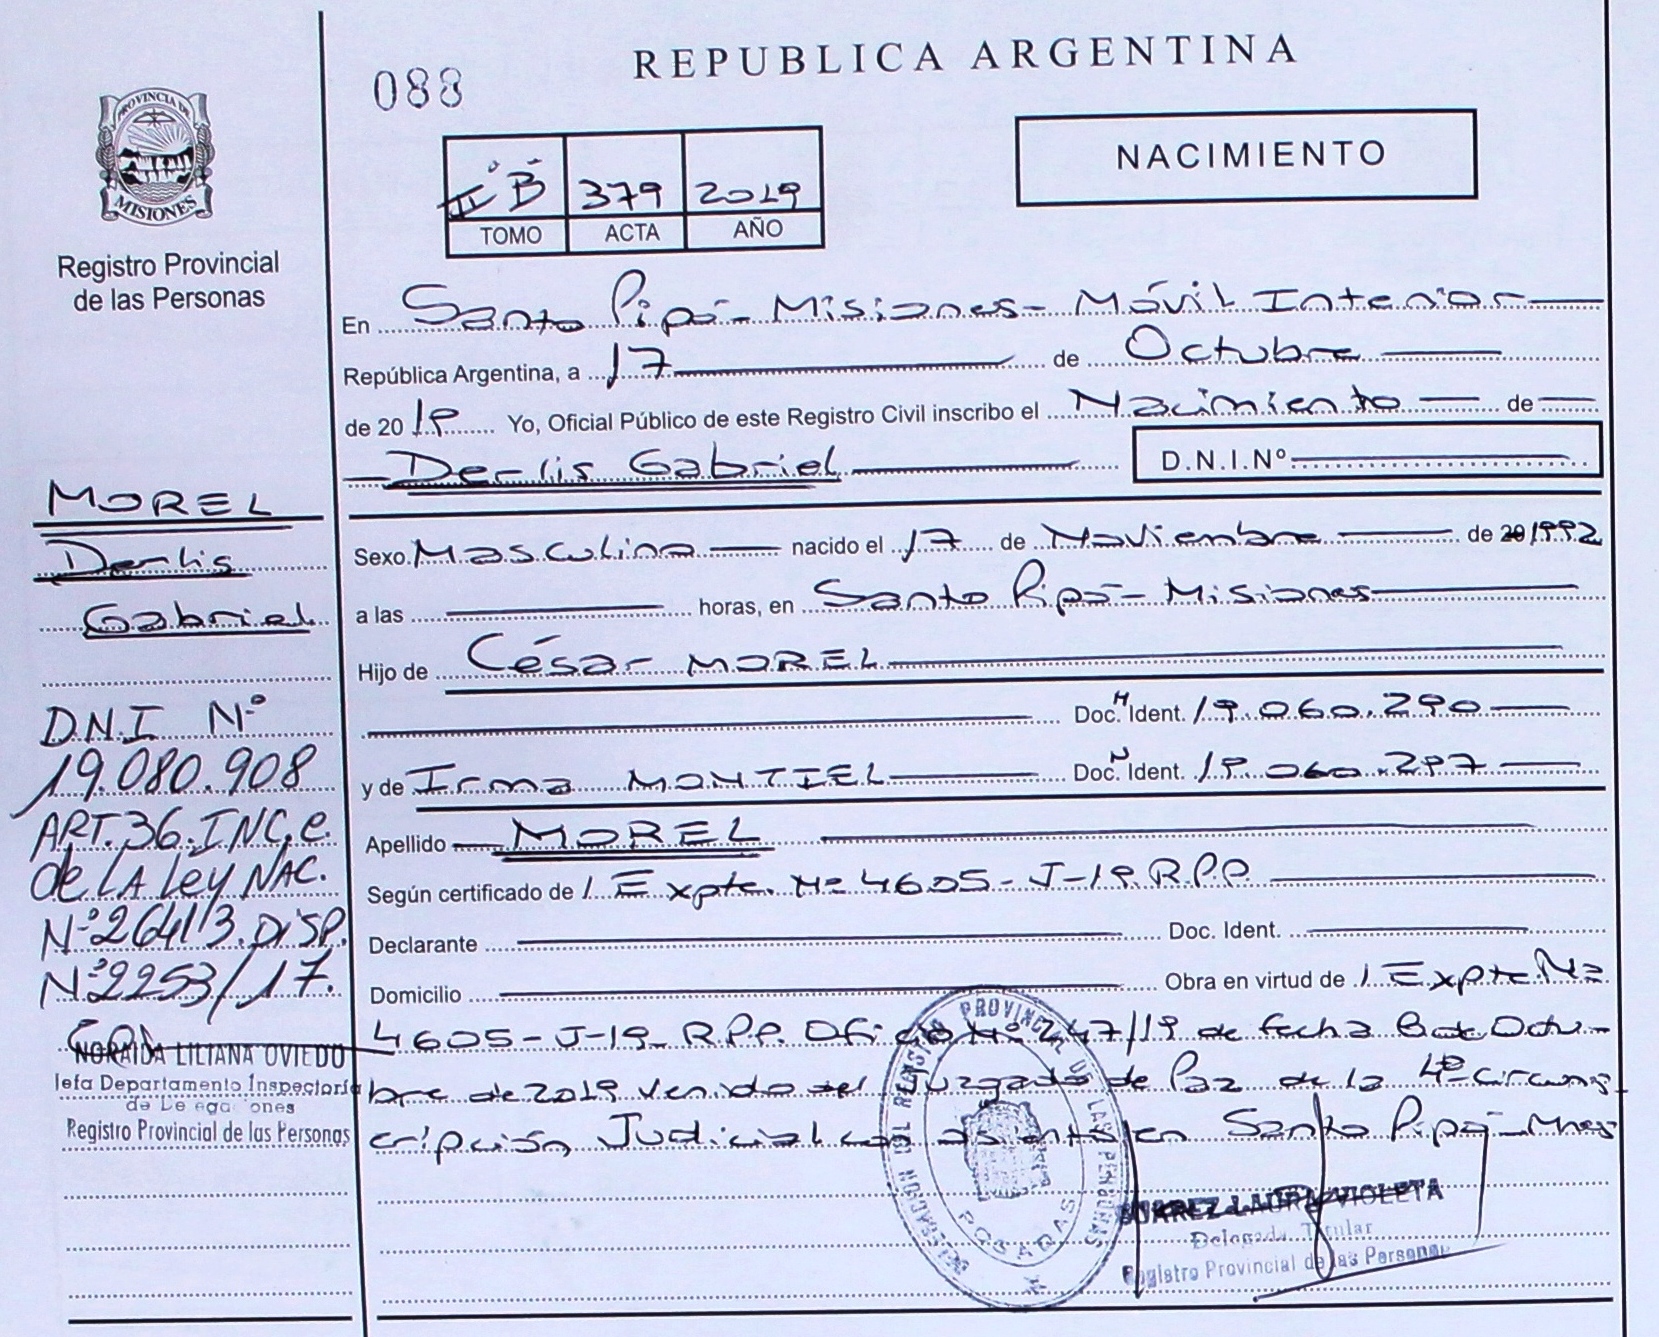 REPUBLICA ARGENTINA
088
PROVINCIA DE
MISIONES
Registro Provincial
de las Personas
II° B 379 2019
TOMO ACTA AÑO
NACIMIENTO
En Santo Pipó - Misiones - Móvil Interior
República Argentina, a 17 de Octubre
de 2019 Yo, Oficial Público de este Registro Civil inscribo el Nacimiento de
Derlis Gabriel D.N.I.Nº
Sexo Masculino nacido el 17 de Noviembre de 20 1992
a las horas, en Santo Pipó - Misiones
Hijo de César MOREL
Doc. Ident. 19.060.290
y de Irma MONTIEL Doc. Ident. 19.060.297
Apellido MOREL
Según certificado de 1 Expte. Nº 4605-J-19 R.P.P.
Declarante Doc. Ident.
Domicilio Obra en virtud de 1 Expte. Nº
4605-J-19 R.P.P. Oficio Nº 247/19 de fecha 8 de Octu-
bre de 2019 venido del Juzgado de Paz de la 4º circuns-
cripción Judicial con asiento en Santo Pipó - Mnes
MOREL
Derlis
Gabriel
D.N.I Nº
19.080.908
ART. 36. INC. e.
de LA Ley NAC.
Nº 26413. DISP.
Nº 2253/17.
NORAIDA LILIANA OVIEDO
Jefa Departamento Inspectoría
de Delegaciones
Registro Provincial de las Personas
PROVINCIAL DE LAS PERSONAS
POSADAS
SUAREZ LAURA VIOLETA
Delegada Titular
Registro Provincial de las Personas